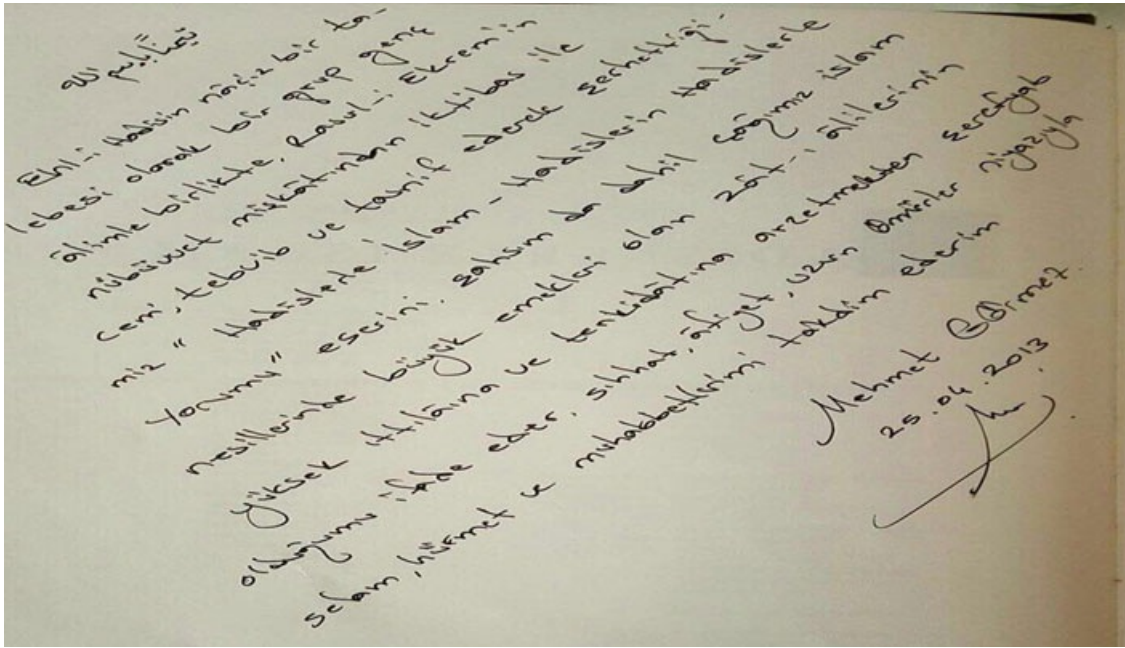 تيمناً باسم الله
Ehl-i Hadisin nâçiz bir ta-
lebesi olarak bir grup genç
âlimle birlikte, Rasul-i Ekrem'in
nübüvvet mişkâtından iktibas ile
cem, tebvib ve tasnif ederek şerhettiği-
miz "Hadislerle İslam - Hadislerin Hadislerle
Yorumu" eserini, şahsım da dahil çağımız islam
nesillerinde büyük emekleri olan zât-ı âlilerinin
yüksek ıttılâına ve tenkidâtına arzetmekten şerefyab
olduğumu ifade eder, sıhhat, âfiyet, uzun ömürler niyazıyla
selam, hürmet ve muhabbetlerimi takdim ederim
Mehmet Görmez
25.04.2013